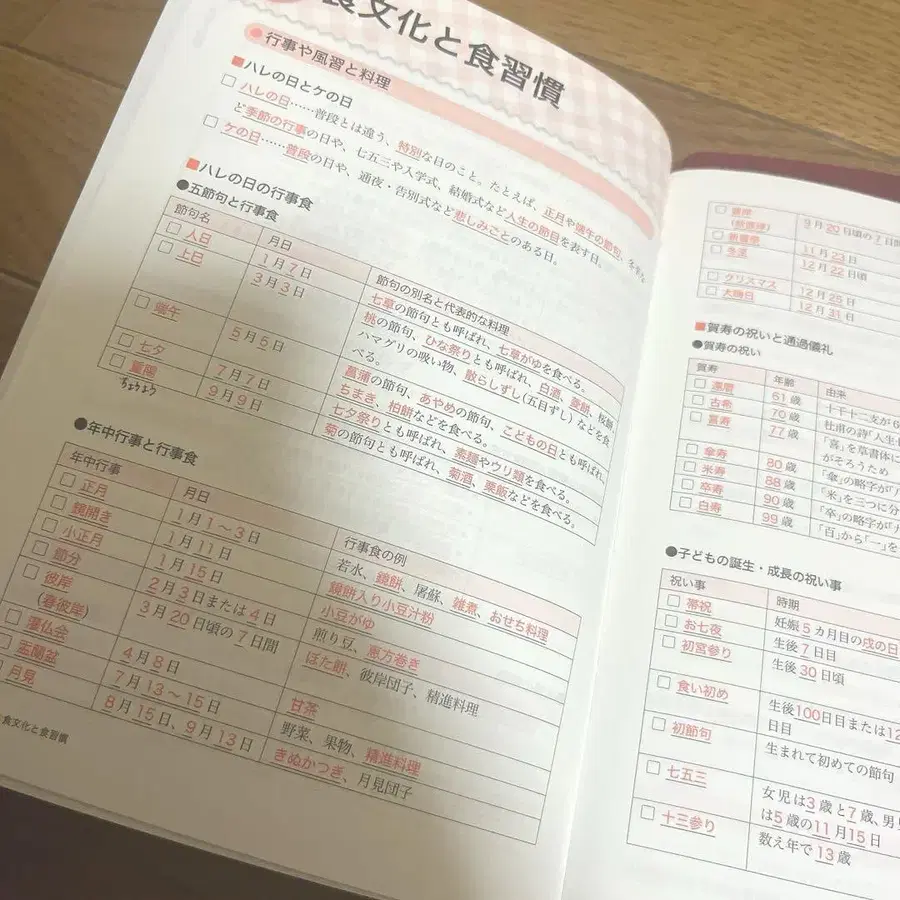 食文化と食習慣
行事や風習と料理
■ハレの日とケの日
□ ハレの日……普段とは違う、特別な日のこと。たとえば、正月や端午の節句、冬至な
ど季節の行事の日や、七五三や入学式、結婚式など人生の節目を表す日。
□ ケの日……普段の日や、通夜・告別式など悲しみごとのある日。
■ハレの日の行事食
●五節句と行事食
節句名 月日 節句の別名と代表的な料理
□ 人日 1月7日 七草の節句とも呼ばれ、七草がゆを食べる。
□ 上巳 3月3日 桃の節句、ひな祭りとも呼ばれ、白酒、菱餅、桜餅、
ハマグリの吸い物、散らしずし(五目ずし)などを食
べる。
□ 端午 5月5日 菖蒲の節句、あやめの節句、こどもの日とも呼ばれ、
ちまき、柏餅などを食べる。
□ 七夕 7月7日 七夕祭りとも呼ばれ、素麺やウリ類を食べる。
□ 重陽 9月9日 菊の節句とも呼ばれ、菊酒、栗飯などを食べる。
ちょうよう
●年中行事と行事食
年中行事 月日 行事食の例
□ 正月 1月1〜3日 若水、鏡餅、屠蘇、雑煮、おせち料理
□ 鏡開き 1月11日 鏡餅入り小豆汁粉
□ 小正月 1月15日 小豆がゆ
□ 節分 2月3日または4日 煎り豆、恵方巻き
□ 彼岸 3月20日頃の7日間 ぼた餅、彼岸団子、精進料理
(春彼岸)
□ 灌仏会 4月8日 甘茶
□ 盂蘭盆 7月13〜15日 野菜、果物、精進料理
月見 8月15日、9月13日 きぬかつぎ、月見団子
食文化と食習慣
□ 彼岸 9月20日頃の7日間
(秋彼岸)
□ 11月23日
□ 冬至 12月22日頃
□ クリスマス 12月25日
□ 大晦日 12月31日
■賀寿の祝いと通過儀礼
●賀寿の祝い
賀寿 年齢 由来
□ 還暦 61歳 十干十二支が6
□ 古希 70歳 杜甫の詩「人生七
□ 喜寿 77歳 「喜」を草書体に
がそろうため
□ 傘寿 80歳 「傘」の略字が「八
□ 米寿 88歳 「米」を三つに分
□ 卒寿 90歳 「卒」の略字が「九
□ 白寿 99歳 「百」から「一」を
●子どもの誕生・成長の祝い事
祝い事 時期
□ 帯祝 妊娠5カ月目の戌の日
□ お七夜 生後7日目
□ 初宮参り 生後30日頃
□ 食い初め 生後100日目または12
日目
□ 初節句 生まれて初めての節句
□ 七五三 女児は3歳と7歳、男児
は5歳の11月15日
□ 十三参り 数え年で13歳